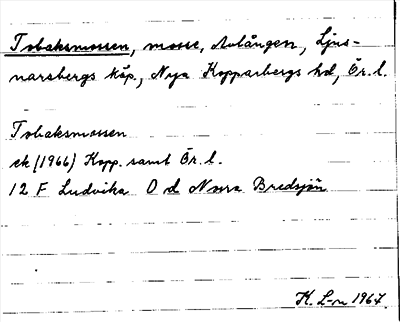 Tobaksmossen, mosse, Avlången, Ljus-
narsbergs kåp., Nya Kopparbergs hd, Ör. l.
Tobaksmossen
ek (1966) Kopp. samt Ör. l.
12 F Ludvika 0 d Norra Bredsjön
K. L-n 1967.